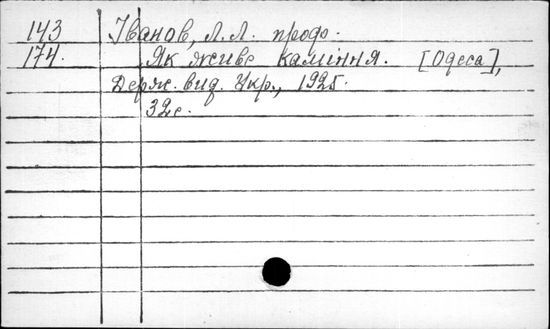 143 Іванов, Л.Л. проф.
174. Як живе каміння. [Одеса],
Держ. вид. Укр., 1925.
32 с.